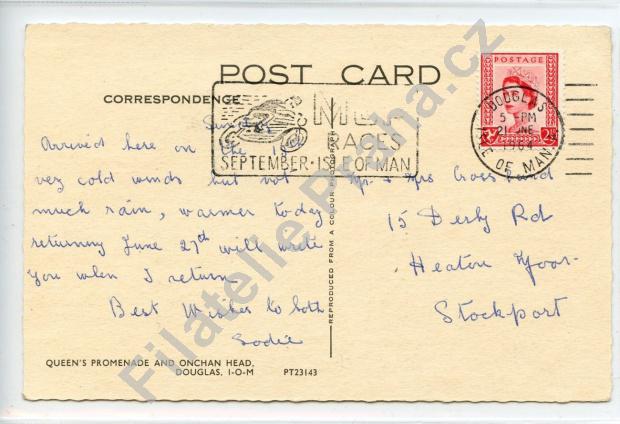 POST CARD
CORRESPONDENCE
RACES
SEPTEMBER·ISLE OF MAN
POSTAGE
DOUGLAS
5 PM
21 JNE
ISLE OF MAN
Arrived here on the
very cold winds but not
much rain, warmer today
returning June 27th will write
you when I return
Best Wishes to both
Sadie
Mr & Mrs
15 Derby Rd
Heaton Moor
Stockport
REPRODUCED FROM A COLOUR PHOTOGRAPH
QUEEN'S PROMENADE AND ONCHAN HEAD,
DOUGLAS, I-O-M
PT23143
Filatelie Praha.cz